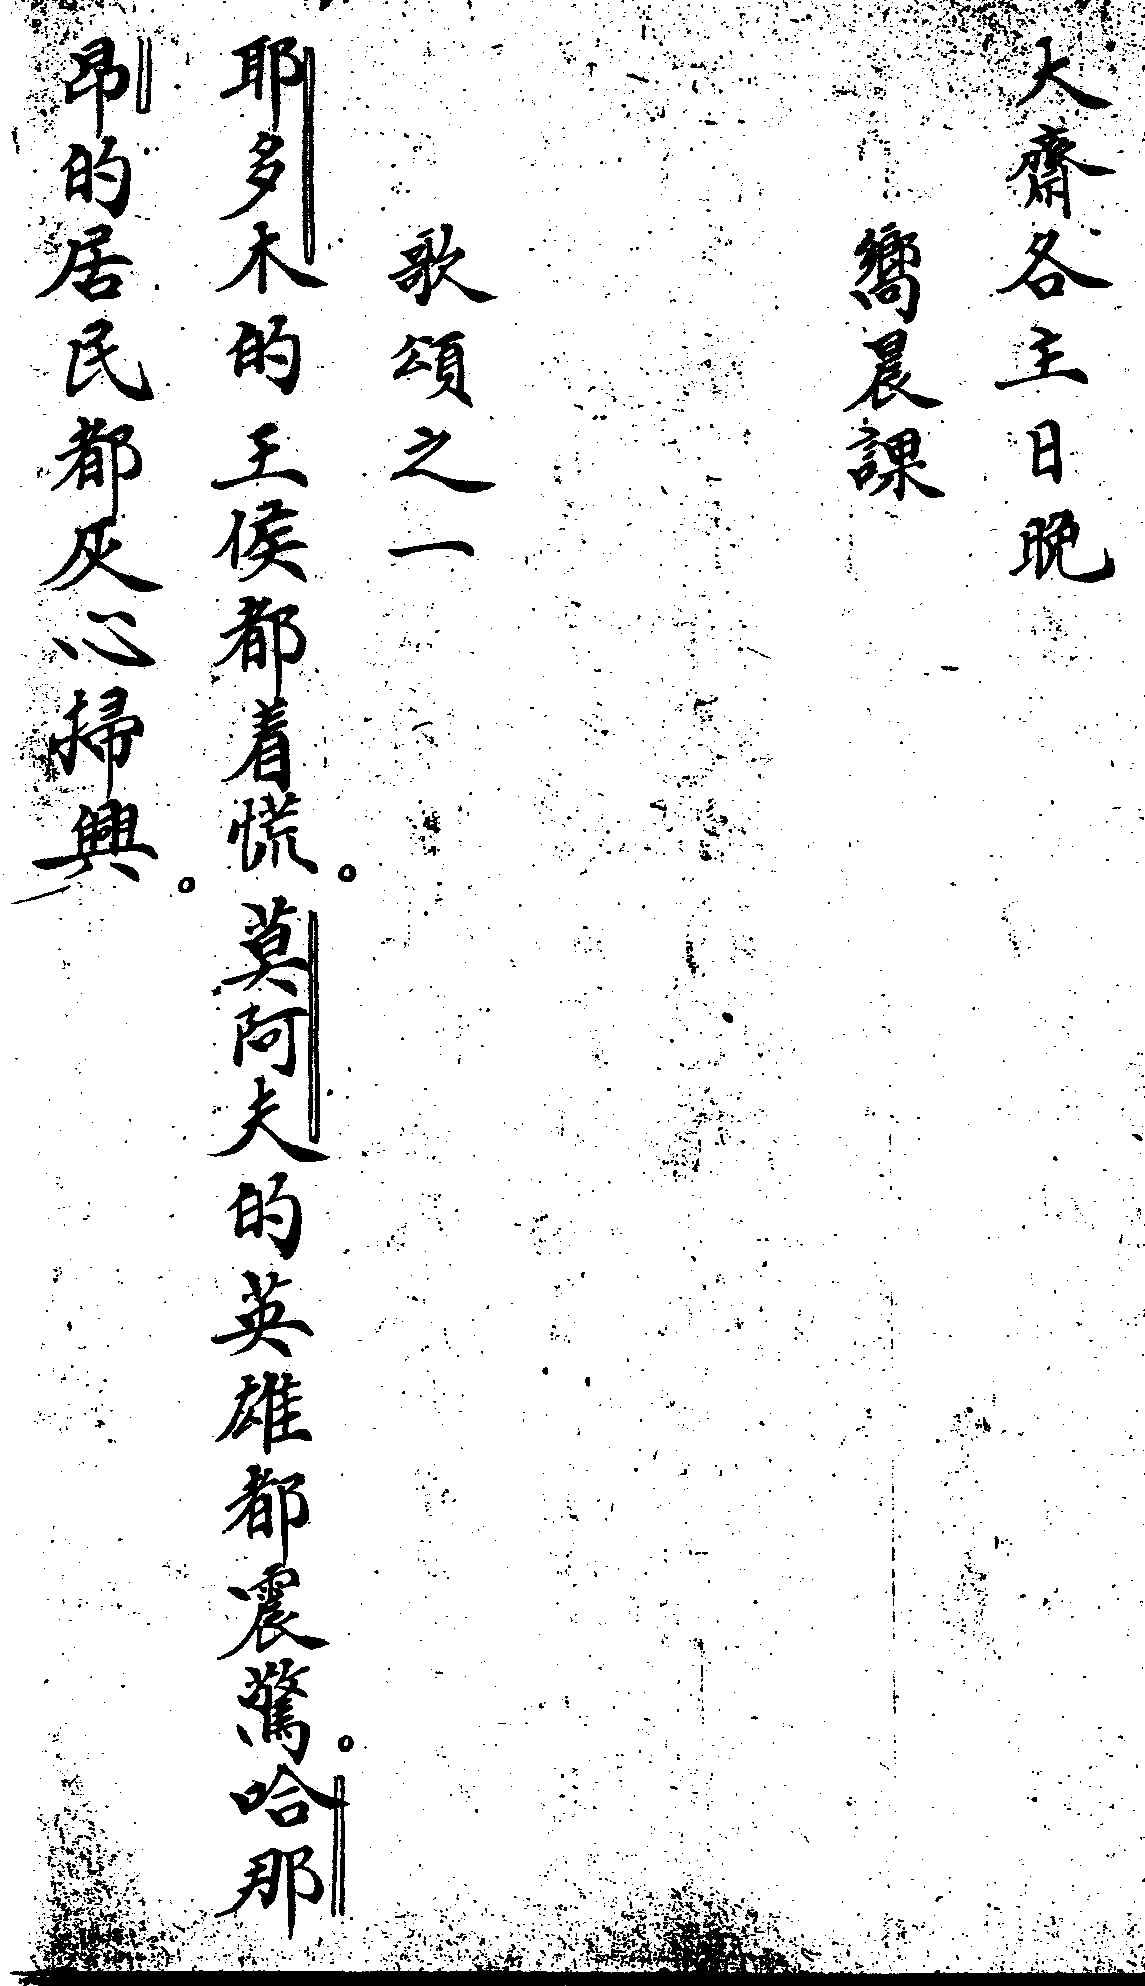 大齋各主日晚
嚮晨課
歌頌之一
耶多木的王侯都着慌。莫阿夫的英雄都震驚。哈那
昂的居民都灰心掃興。